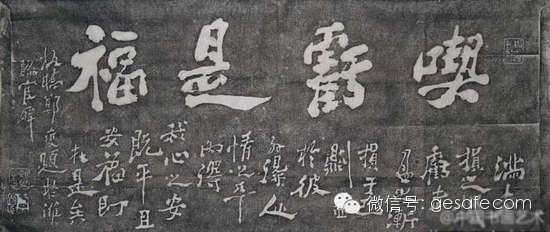 喫虧是福
滿
損之
虧者
盈之漸
損于己
則盈
於彼
外得人
情之平
内得
我心之安
既平且
安福即
在是矣
板橋鄭燮題於濰
縣官署
微信号: gesafe.com
书画艺术